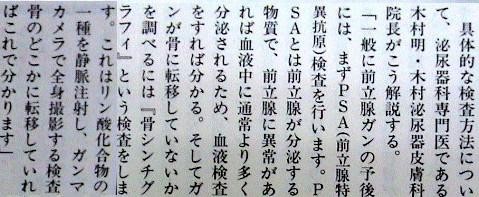 具体的な検査方法につい
て、泌尿器科専門医である
木村明・木村泌尿器皮膚科
院長がこう解説する。
「一般に前立腺ガンの予後
には、まずPSA（前立腺特
異抗原）検査を行います。P
SAとは前立腺が分泌する
物質で、前立腺に異常があ
れば血液中に通常より多く
分泌されるため、血液検査
をすれば分かる。そしてガ
ンが骨に転移していないか
を調べるには『骨シンチグ
ラフィ』という検査をしま
す。これはリン酸化合物の
一種を静脈注射し、ガンマ
カメラで全身撮影する検査
骨のどこかに転移していれ
ばこれで分かります」